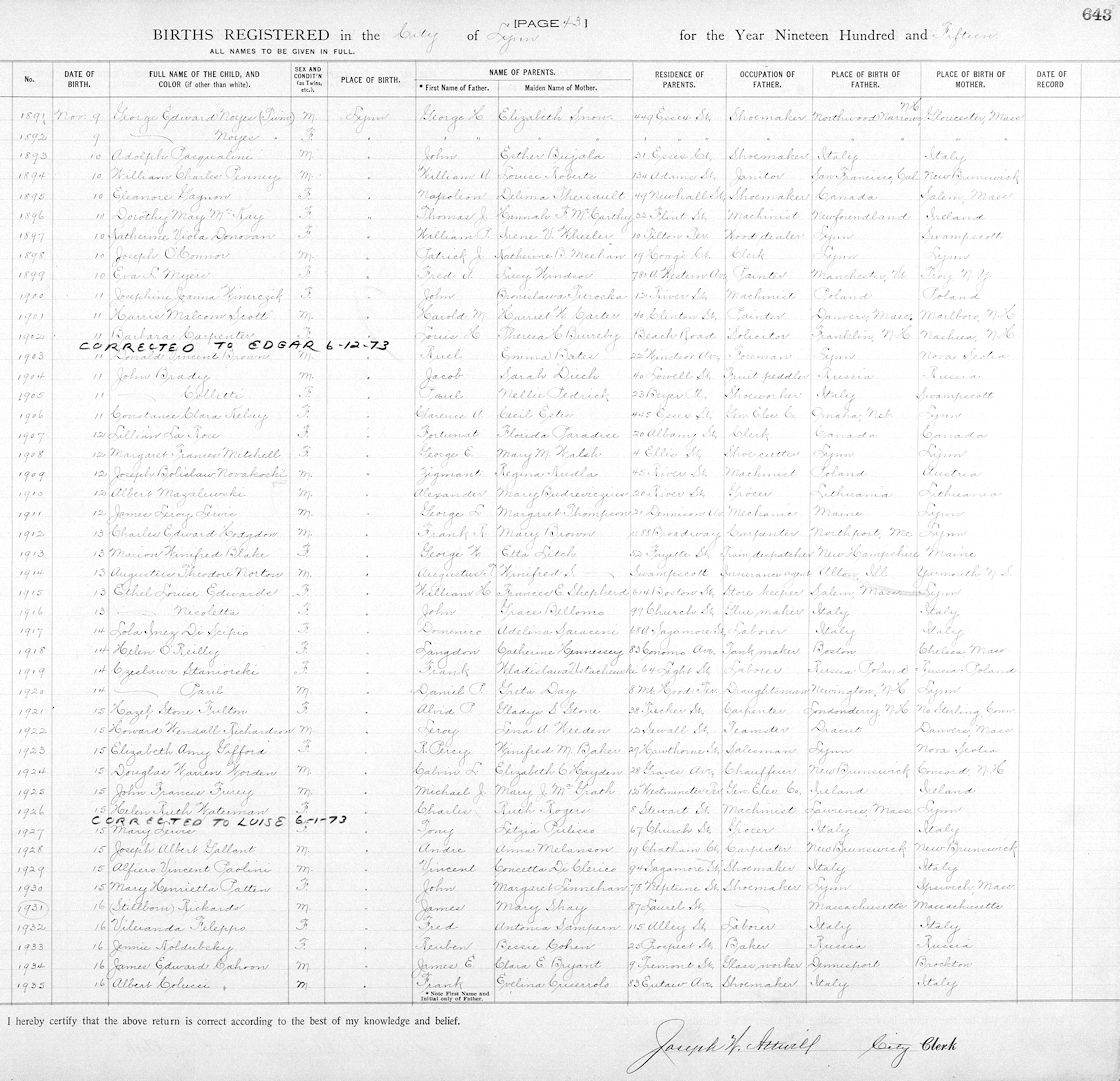 643
[PAGE 43]
BIRTHS REGISTERED in the City of Lynn for the Year Nineteen Hundred and Fifteen
ALL NAMES TO BE GIVEN IN FULL.
No. DATE OF BIRTH. FULL NAME OF THE CHILD, AND COLOR (if other than white). SEX AND CONDIT'N (as Twins, etc.). PLACE OF BIRTH. NAME OF PARENTS. * First Name of Father. Maiden Name of Mother. RESIDENCE OF PARENTS. OCCUPATION OF FATHER. PLACE OF BIRTH OF FATHER. PLACE OF BIRTH OF MOTHER. DATE OF RECORD
1891 Nov. 9 George Edward Noyes (Twins) M. Lynn George H Elizabeth Snow 449 Essex St. Shoemaker Northwood Narrows N.H. Gloucester, Mass
1892 9 Noyes " F. " " " " " " " "
1893 10 Adolph Pasqualine M. " John Esther 31 Essex Ct. Shoemaker Italy Italy
1894 10 William Charles Penney M. " William A Louise Roberts 134 Adams St. Janitor San Francisco, Cal New Brunswick
1895 10 Eleanore Gagnon F. " Napoleon Delima Theriault 49 Newhall St. Shoemaker Canada Salem, Mass
1896 10 Dorothy May McKay F. " Thomas J. Hannah F. McCarthy 22 Flint St. Machinist Newfoundland Ireland
1897 10 Katherine Viola Donovan F. " William P. Irene V. Wheeler 10 Tilton Ter. Wood dealer Lynn Swampscott
1898 10 Joseph O'Connor M. " Patrick J. Katherine B. Meehan 19 Ct. Clerk Lynn Lynn
1899 10 Eva L Myers F. " Fred S. Lucy Windsor 781A Western Ave Painter Manchester, Troy N.Y.
1900 11 Josephine Joanna F. " John Bronislawa 12 River St. Machinist Poland Poland
1901 11 Harris Malcom Scott M. " Harold M. Harriet W. Carter 40 Clinton St. Painter Danvers, Mass. Marlboro, N.H
1902 11 Barbara Carpenter F. " Louis H. Theresa H. Beach Road Solicitor Franklin, N.H Nashua, N.H
CORRECTED TO EDGAR 6-12-73
1903 11 Donald Vincent Brown M. " Ruel Emma Bates 22 Windsor Ave. Foreman Lynn Nova Scotia
1904 11 John Brady M. " Jacob Sarah 40 Lowell St. Fruit peddler Russia Russia
1905 11 Collette F. " Paul Nellie Pedrick 23 St. Shoeworker Italy Swampscott
1906 11 Constance Clara F. " Clarence A Cecil Estes 445 Essex St. Gen. Elec. Co. Omaha, Neb Lynn
1907 12 Lillian La Rose F. " Fortunat Florida Paradise 20 Albany St. Clerk Canada Canada
1908 12 Margaret Frances Mitchell F. " George E. Mary M. Walsh 4 Ellis St. Shoe cutter Lynn Lynn
1909 12 Joseph Bolislaw Novakoski M. " Zigmant Regina 45 River St. Machinist Poland Austria
1910 12 Albert Mazalewski M. " Alexander Mary 20 River St. Grocer Lithuania Lithuania
1911 12 James Leroy Lewis M. " George L. Margaret Thompson 21 Dennison Av. Mechanic Maine Lynn
1912 13 Charles Edward Hodgdon M. " Frank R. Mary Brown 1188 Broadway Carpenter Northport, Me Lynn
1913 13 Marion Winifred Blake F. " George W. Etta Leitch 52 Fayette St. Train dispatcher New Hampshire Maine
1914 13 Augustus Theodore Norton M. " Augustus T Winifred S. Swampscott Insurance agent Alton, Ill Yarmouth N.S.
1915 13 Ethel Louise Edwards F. " William H Frances E. Shepherd 614 Boston St. Store keeper Salem, Mass Lynn
1916 13 Nicoletta F. " John Grace Bellomo 97 Church St. Glue maker Italy Italy
1917 14 Lola Inez Di Scipio F. " Domenico Adelina Saraceni 68A Sagamore St. Laborer Italy Italy
1918 14 Helen O'Reilly F. " Langdon Catherine Hennessey 83 Conomo Av. Tank maker Boston Chelsea Mass
1919 14 Czeslawa Staniorski F. " Frank Wladislawa 64 Light St. Laborer Russia Poland Russia-Poland
1920 14 Paul M. " Daniel P. Greta Day 8 Mt. Hood Ter. Draughtsman Newington, N.H Lynn
1921 15 Hazel Stone Fulton F. " Alvid P. Gladys S. Stone 38 St. Carpenter Londonderry N.H No Sterling Conn
1922 15 Howard Wendall Richardson M. " Leroy Lena A Weeden 12 Sewall St. Teamster Dracut Danvers, Mass
1923 15 Elizabeth Amy Gifford F. " R. Percy Winifred M. Baker 29 Hawthorne St. Salesman Lynn Nova Scotia
1924 15 Douglas Warren Worden M. " Calvin L. Elizabeth C Hayden 28 Graves Av. Chauffeur New Brunswick Concord, N.H
1925 15 John Francis Furey M. " Michael J. Mary J. McGrath 12 Westminster Ter. Gen. Elec. Co. Ireland Ireland
1926 15 Helen Ruth Waterman F. " Charles Ruth Rogers 8 Stewart St. Machinist Lawrence Mass Lynn
CORRECTED TO LUISE 6-1-73
1927 15 Mary Lewis F. " Tony Letzia 67 Church St. Grocer Italy Italy
1928 15 Joseph Albert Gallant M. " Andre Anna Melanson 19 Chatham Ct. Carpenter New Brunswick New Brunswick
1929 15 Alfiero Vincent Paolini M. " Vincent Concetta Di Clerico 94 Sagamore St. Shoemaker Italy Italy
1930 15 Mary Henrietta Patten F. " John Margaret Linnehan 78 Neptune St. Shoemaker Lynn Ipswich, Mass
1931 16 (Stillborn) Richards M. " James Mary Shay 87 Laurel St. Massachusetts Massachusetts
1932 16 Vileranda Fileppo F. " Fred Antonia 115 Alley St. Laborer Italy Italy
1933 16 Jennie Noldubsky F. " Reuben Bessie Cohen 25 Prospect St. Baker Russia Russia
1934 16 James Edward Cahoon M. " James E Clara E Bryant 9 Tremont St. Glass worker Dennisport Brockton
1935 16 Albert Colucci M. " Frank Evelina 83 Eutaw Av. Shoemaker Italy Italy
* Note First Name and Initial only of Father.
I hereby certify that the above return is correct according to the best of my knowledge and belief.
Joseph W. Attwill City Clerk